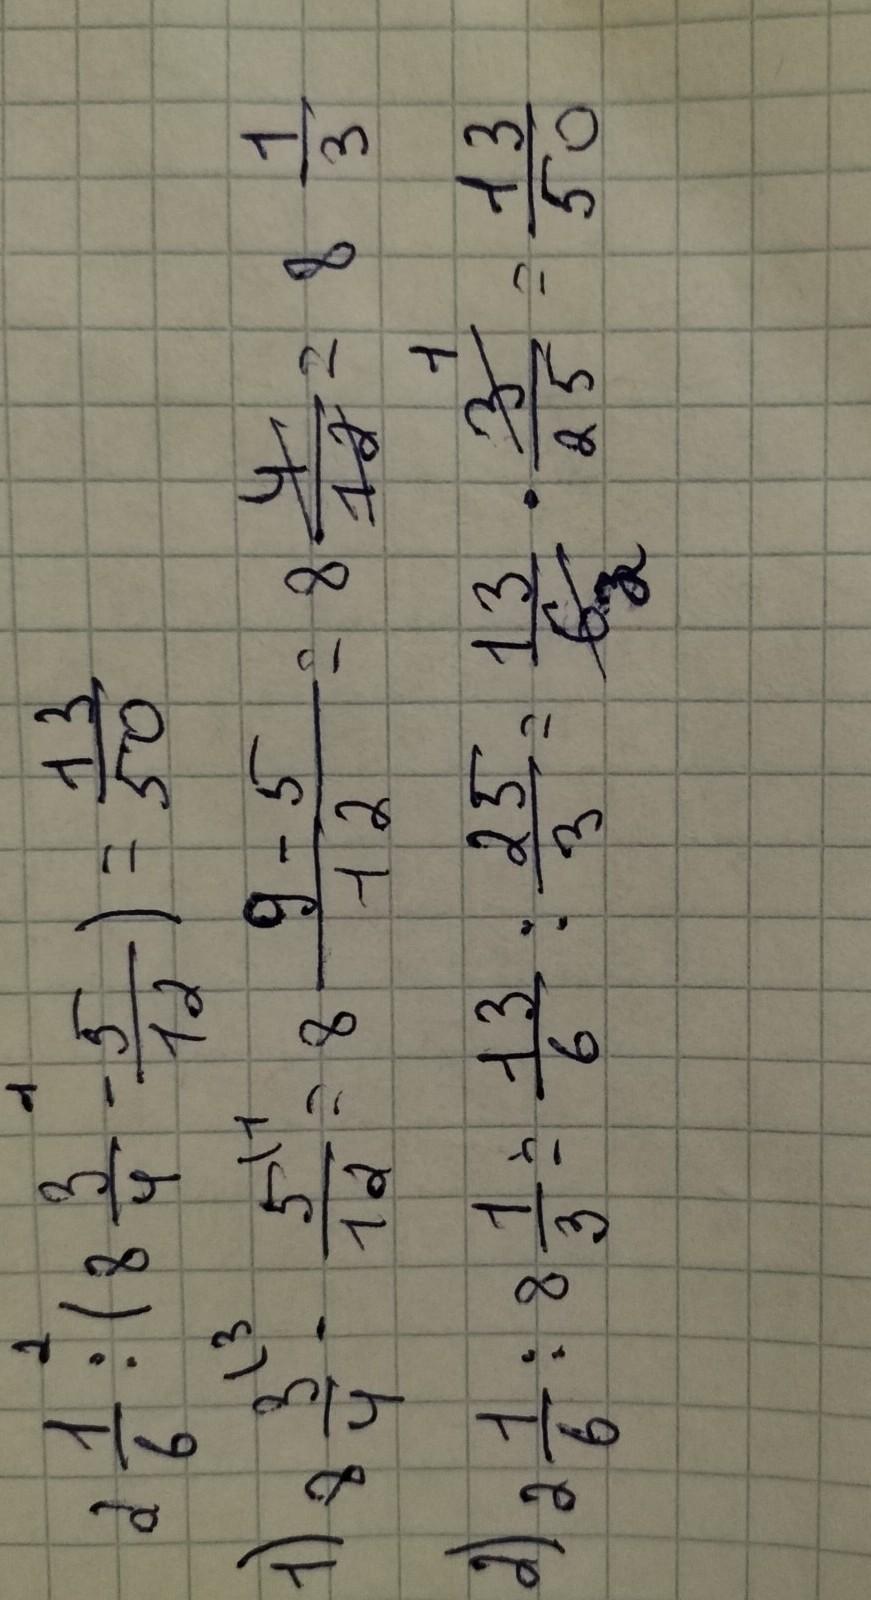 2 1/6 :² (8 3/4 -¹ 5/12) = 13/50
1) 8 3/4⁽³ - 5/12⁽¹ = 8 9-5/12 = 8 4/12 = 8 1/3
2) 2 1/6 : 8 1/3 = 13/6 : 25/3 = 13/6 2 · 3 1/25 = 13/50